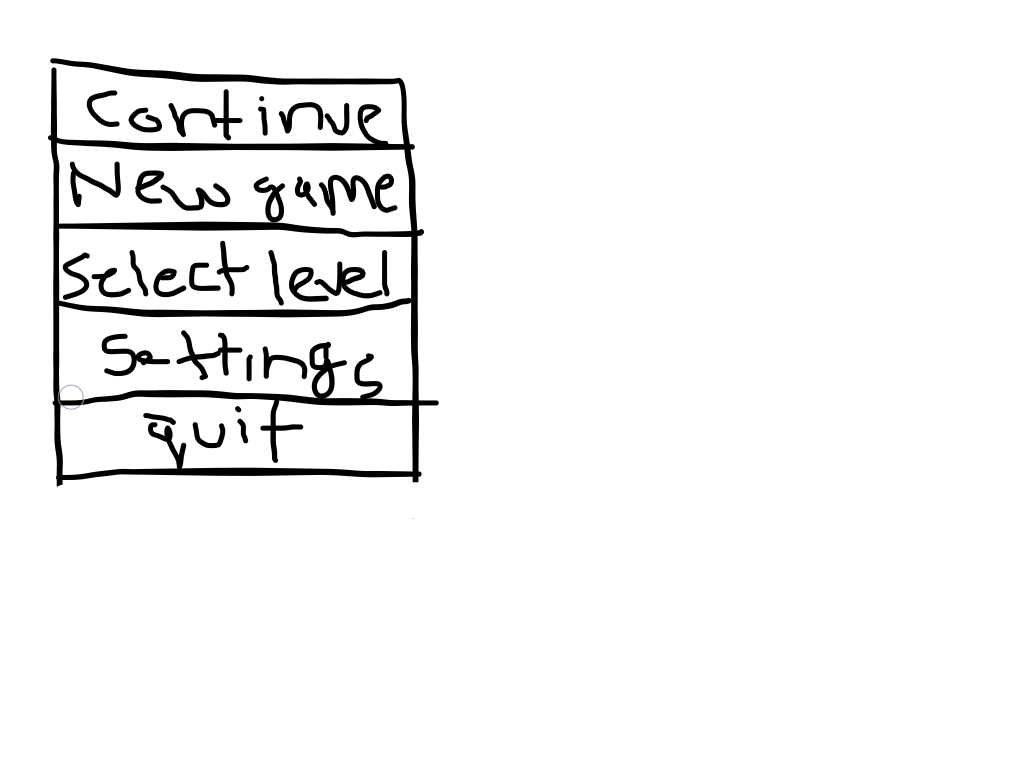 Continue
New game
Select level
Settings
quit